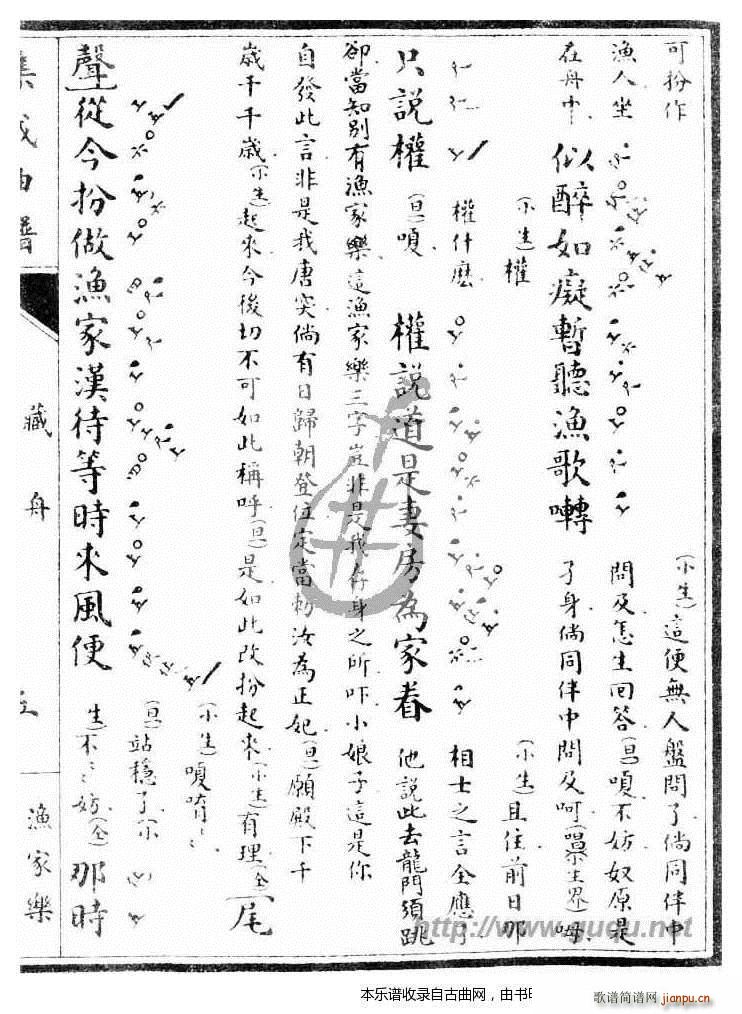 可扮作
漁人坐
在舟中
似醉如癡暫聽漁歌囀
(小生)這便無人盤問了倘同伴中
問及怎生回答(旦)嗄不妨奴原是
孑身倘同伴中問及呵
(小生)權
權什麽
只說權
(旦)嗄
權說道是妻房為家眷
(小生)且住前日那
相士之言全應了
他說此去龍門須跳
卻當知別有漁家樂這漁家樂三字豈非是我存身之所吓小娘子這是你
自發此言非是我唐突倘有日歸朝登位定當勅汝為正妃(旦)願殿下千
歲千千歲(小生)起來今後切不可如此稱呼(旦)是如此改扮起來(小生)有理(仝)
尾
聲
從今扮做漁家漢待等時來風便
(小生)嗄
(旦)站穩了(小
生)不〻妨(仝)
那時
集成曲譜
藏舟
漁家樂
http://www.guqu.net
本乐谱收录自古曲网，由书
歌谱简谱网
jianpu.cn